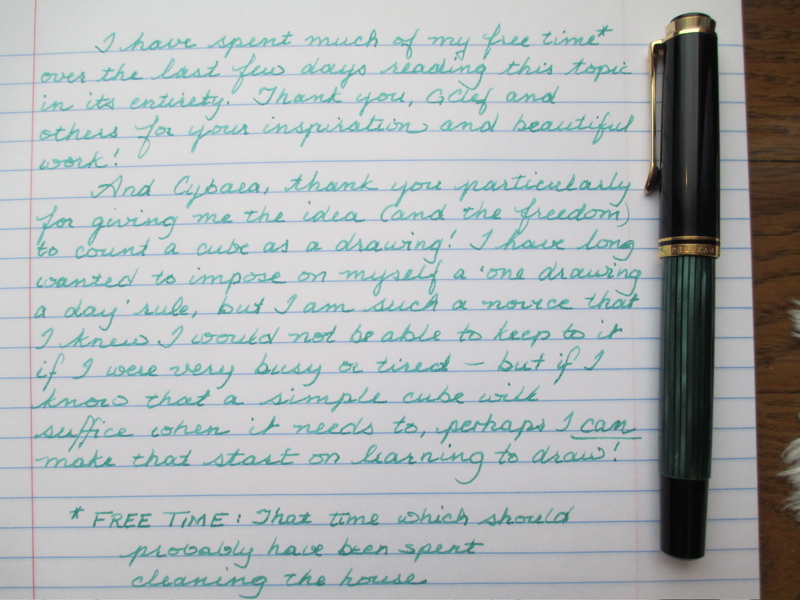 I have spent much of my free time*
over the last few days reading this topic
in its entirety. Thank you, GClef and
others for your inspiration and beautiful
work!
And Cybaea, thank you particularly
for giving me the idea (and the freedom)
to count a cube as a drawing! I have long
wanted to impose on myself a 'one drawing
a day' rule, but I am such a novice that
I knew I would not be able to keep to it
if I were very busy or tired – but if I
know that a simple cube will
suffice when it needs to, perhaps I can
make that start on learning to draw!
* FREE TIME: That time which should
probably have been spent
cleaning the house.
PELIKAN